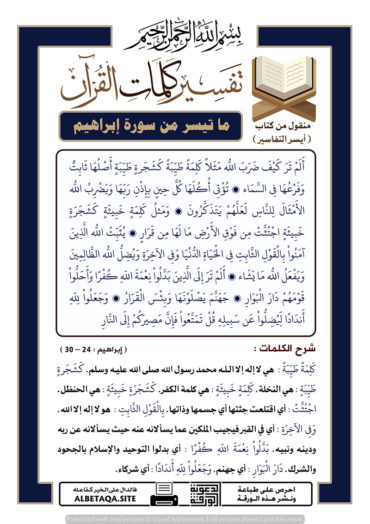 بسم الله الرحمن الرحيم
تفسير كلمات القرآن
ما تيسر من سورة إبراهيم
منقول من كتاب
( أيسر التفاسير )
أَلَمْ تَرَ كَيْفَ ضَرَبَ اللَّه مَثَلاً كَلِمَةً طَيِّبَةً كَشَجَرةٍ طَيِّبَةٍ أَصْلُهَا ثَابِتٌ
وَفَرْعُهَا فِي السَّمَاء * تُؤْتِي أُكُلَهَا كُلَّ حِينٍ بِإِذْنِ رَبِّهَا وَيَضْرِبُ اللَّه
الأَمْثَالَ لِلنَّاسِ لَعَلَّهُمْ يَتَذَكَّرُونَ * وَمَثلُ كَلِمَةٍ خَبِيثَةٍ كَشَجَرَةٍ
خَبِيثَةٍ اجْتُثَّتْ مِن فَوْقِ الأَرْضِ مَا لَهَا مِن قَرَارٍ * يُثَبِّتُ اللَّه الَّذِينَ
آمَنُواْ بِالْقَوْلِ الثَّابِتِ فِي الْحَيَاةِ الدُّنْيَا وَفِي الآخِرَةِ وَيُضِلُّ اللَّه الظَّالِمِينَ
وَيَفْعَلُ اللَّه مَا يَشَاء * أَلَمْ تَرَ إِلَى الَّذِينَ بَدَّلُواْ نِعْمَةَ اللَّهِ كُفْرًا وَأَحَلُّواْ
قَوْمَهُمْ دَارَ الْبَوَارِ * جَهَنَّمَ يَصْلَوْنَهَا وَبِئْسَ الْقَرَارُ * وَجَعَلُواْ لِلَّهِ
أَندَادًا لِّيُضِلُّواْ عَن سَبِيلِهِ قُلْ تَمَتَّعُواْ فَإِنَّ مَصِيرَكُمْ إِلَى النَّارِ
شرح الكلمات :
( إبراهيم : 24 – 30 )
كَلِمَةً طَيِّبَةً : هي لا إله إلا الـلـه محمد رسول الله صلى الله عليه وسلم. كَشَجَرةٍ
طَيِّبَةٍ : هي النخلة. كَلِمَةٍ خَبِيثَةٍ : هي كلمة الكفر. كَشَجَرَةٍ خَبِيثَةٍ : هي الحنظل.
اجْتُثَّتْ : أي اقتلعت جثتها أي جسمها وذاتها. بِالْقَوْلِ الثَّابِتِ : هو لا إله إلا الله .
وَفِي الآخِرَةِ : أي في القبر فيجيب الملكين عما يسألانه عنه حيث يسألانه عن ربه
ودينه ونبيه. بَدَّلُواْ نِعْمَةَ اللَّهِ كُفْرًا : أي بدلوا التوحيد والإسلام بالجحود
والشرك. دَارَ الْبَوَارِ : أي جهنم. وَجَعَلُواْ لِلَّهِ أَندَادًا : أي شركاء.
احرص على طباعة
ونشر هذه الورقة
الدعوية
الورقة
فالدال على الخير كفاعله
ALBETAQA.SITE